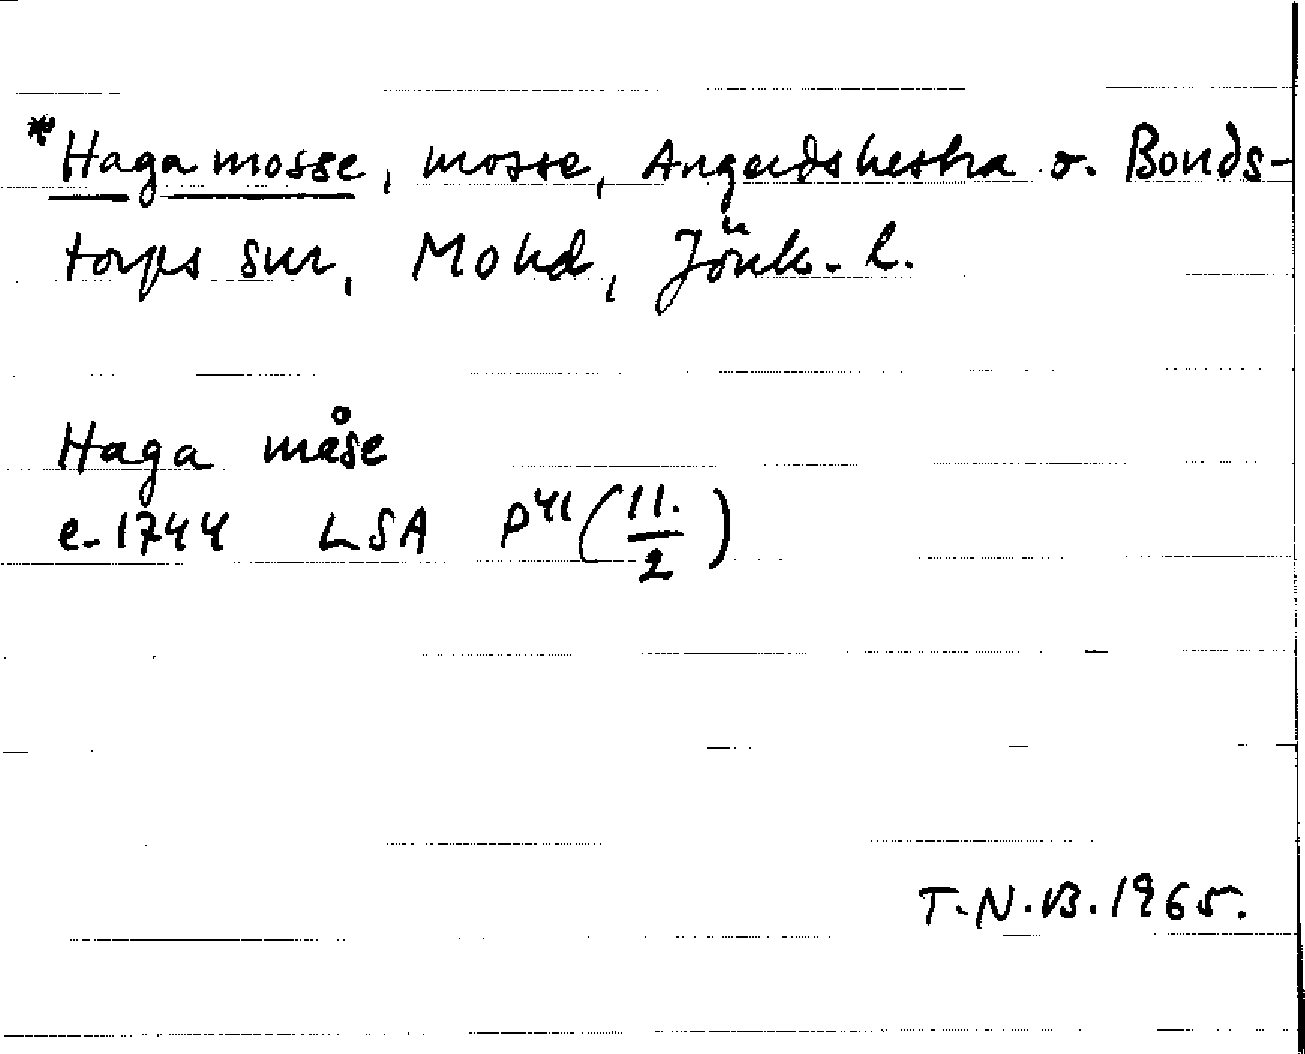 *Haga mosse, mosse, Angerdshestra o. Bonds-
torps snr, Mo hd, Jönk. l.
Haga måse
e. 1744 LSA P41 (11./2)
T.N.B. 1965.